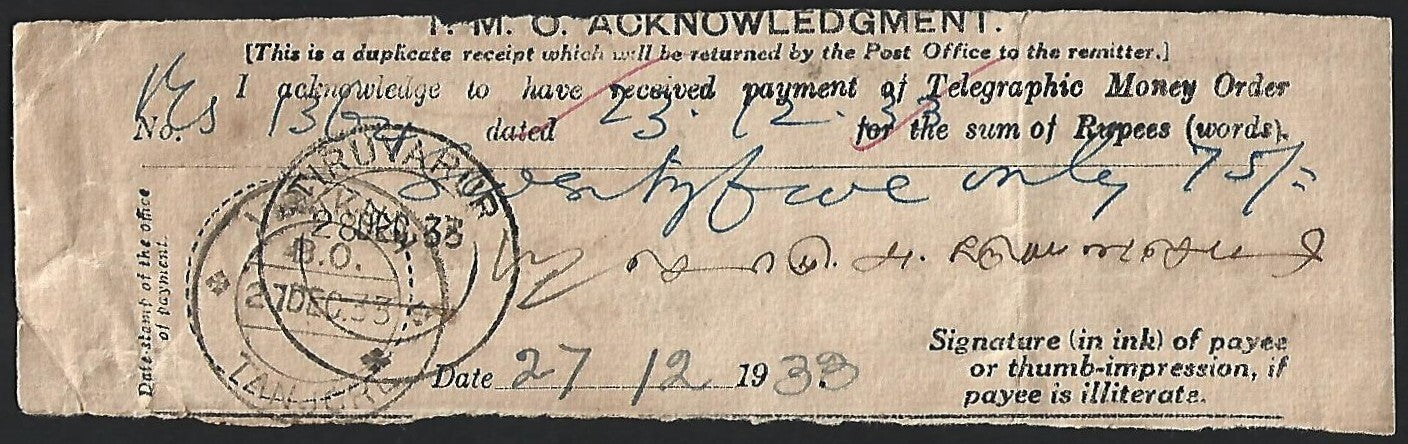 T. M. O. ACKNOWLEDGMENT.
[This is a duplicate receipt which will be returned by the Post Office to the remitter.]
I acknowledge to have received payment of Telegraphic Money Order
No. dated 23.12.33 for the sum of Rupees (words).
only 75/=
Date-stamp of the office
of payment.
TIRUVARUR
28 DEC 33
B.O.
27 DEC.33
TANJORE
Date 27/12 1933
Signature (in ink) of payee
or thumb-impression, if
payee is illiterate.